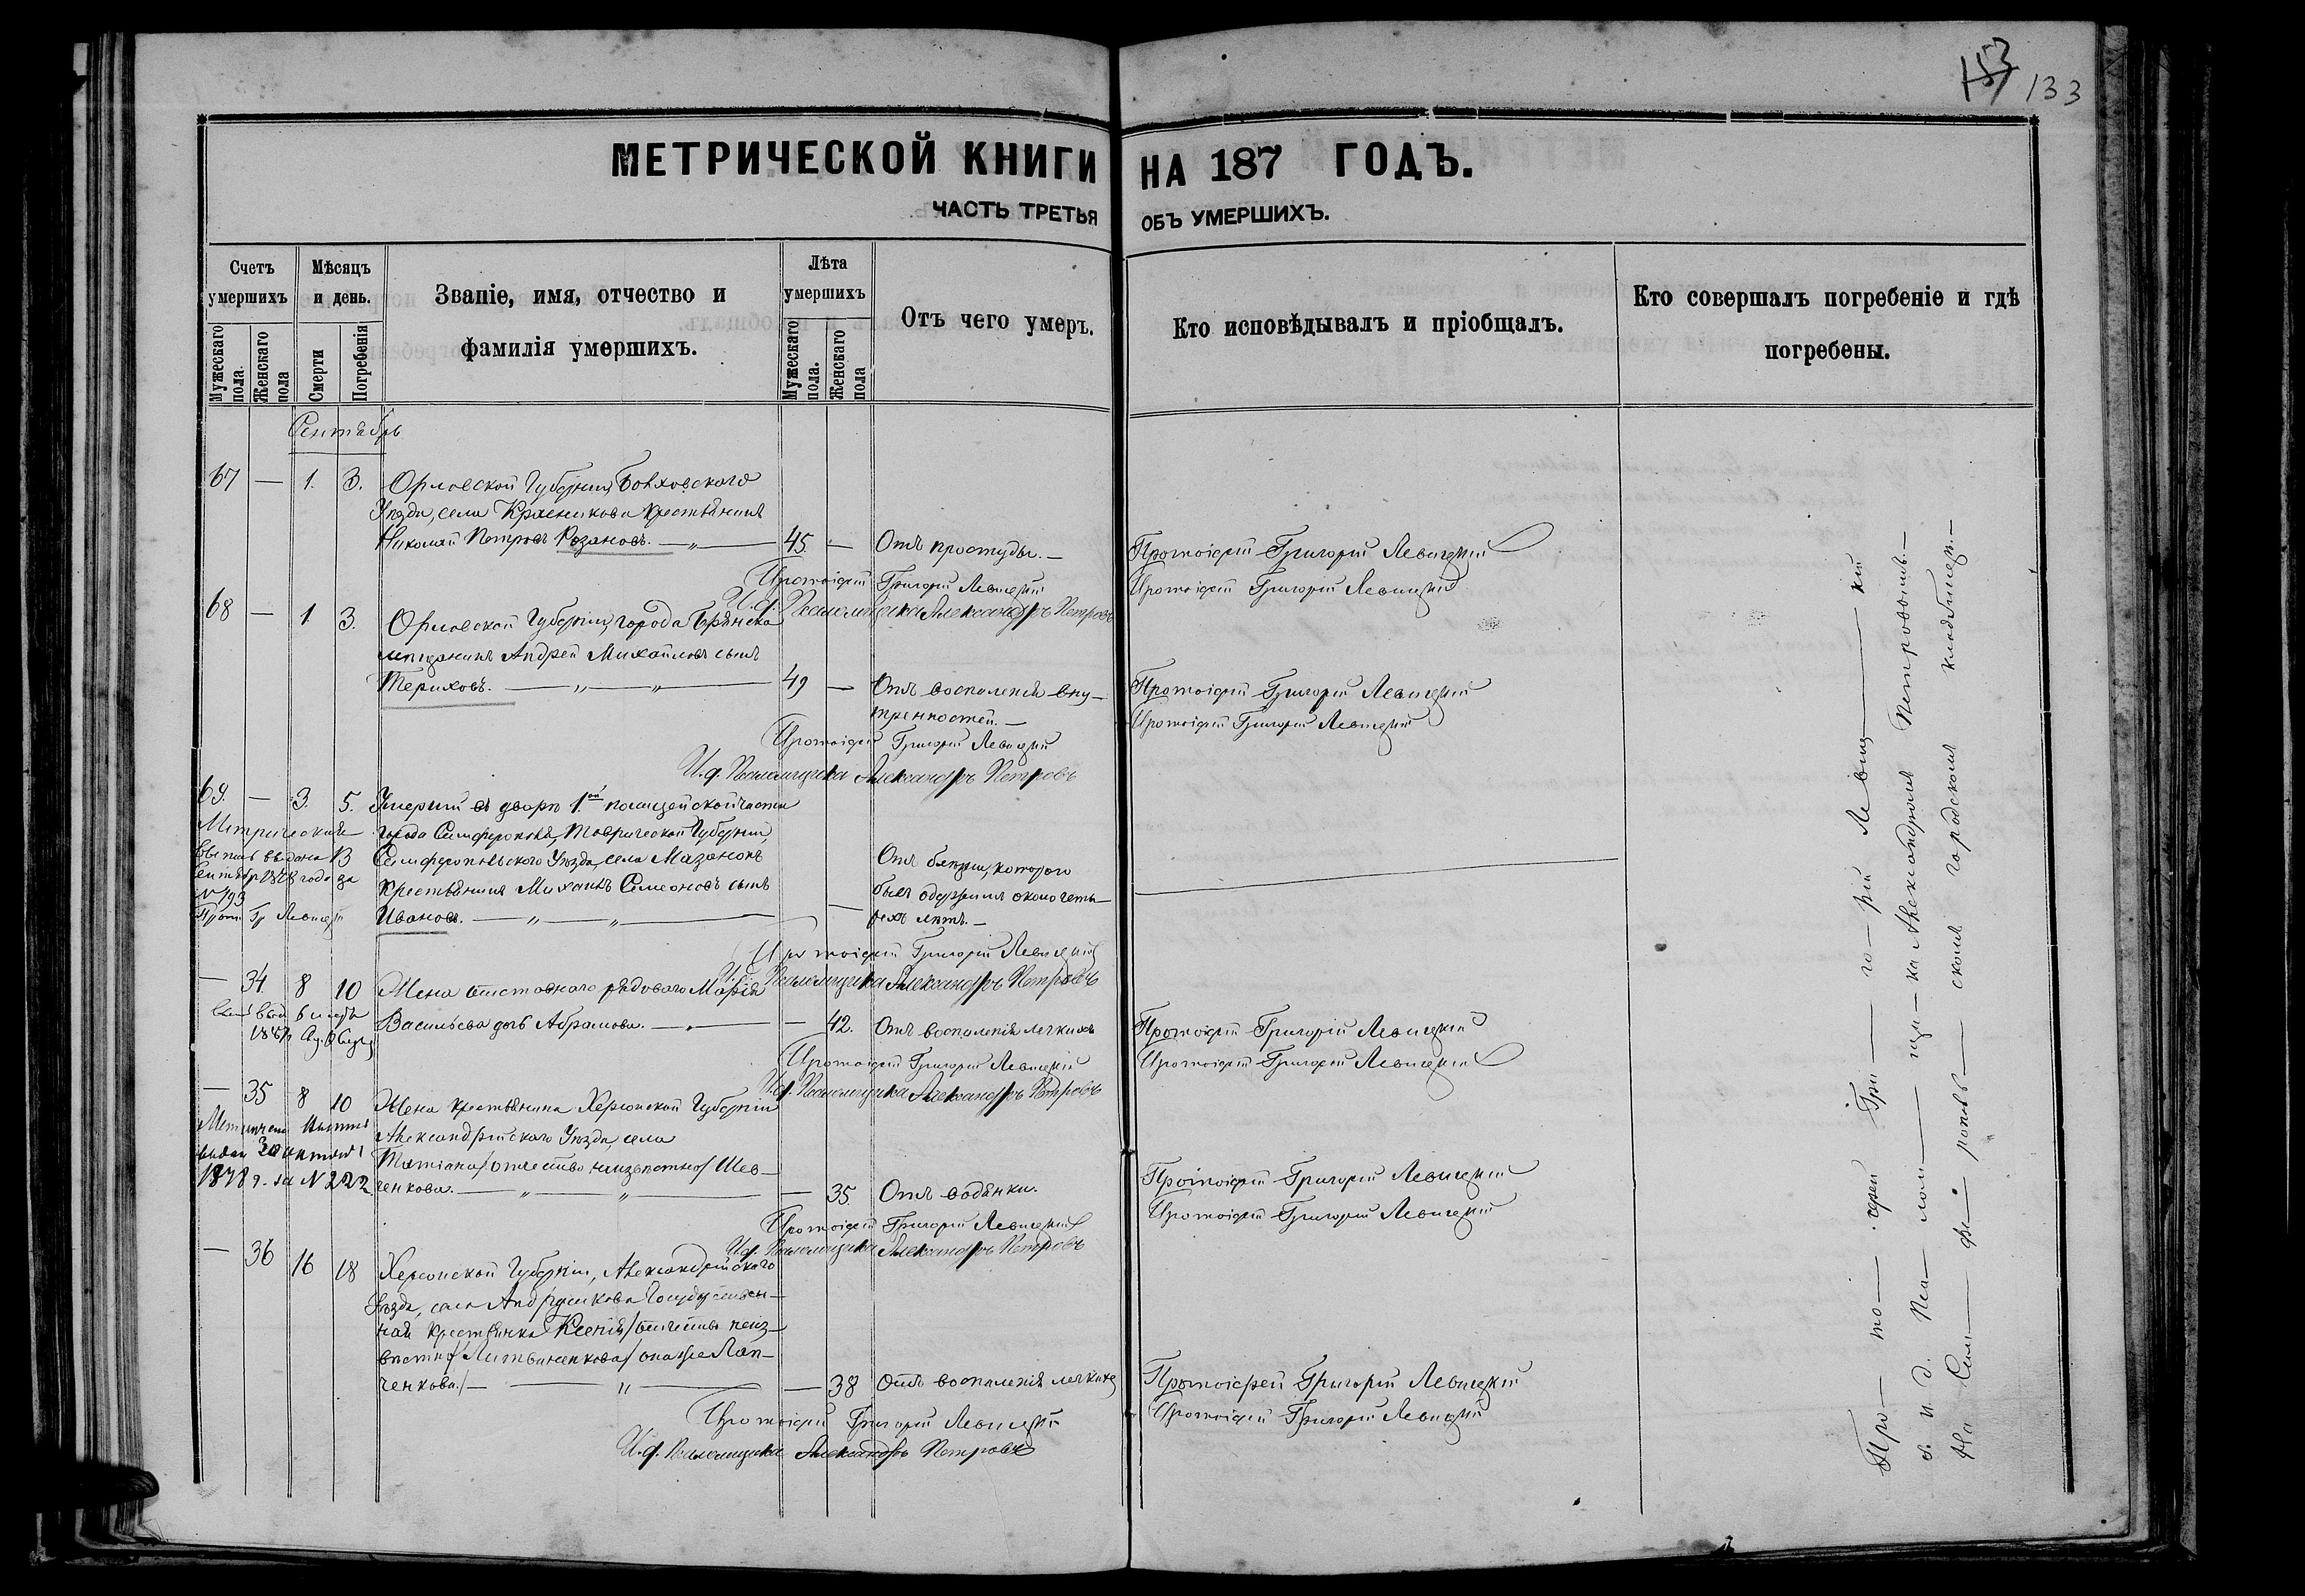 153 133
МЕТРИЧЕСКОЙ КНИГИ НА 187 ГОДЪ.
ЧАСТЬ ТРЕТЬЯ ОБЪ УМЕРШИХЪ.
Счетъ умершихъ
Мужескаго пола.
Женскаго пола
Мѣсяцъ и день.
Смерти
Погребенія
Званіе, имя, отчество и
фамилія умершихъ.
Лѣта умершихъ
Мужескаго пола.
Женскаго пола
Отъ чего умеръ.
Кто исповѣдывалъ и пріобщалъ.
Кто совершалъ погребеніе и гдѣ
погребены.
Сентябрь
67 — 1. 3. Орловской Губерніи, Болховскаго
Уѣзда, села Крестьянинъ
Николай Петровъ Розановъ. — „ — 45. — Отъ простуды. — Протоіерей Григорій Левицкій
Протоіерей Григорій Левицкій Протоіерей Григорій Левицкій
И. д. Псаломщика Александръ Петровъ
68 — 1 3. Орловской Губерніи, города Брянска
мѣщанинъ Андрей Михайловъ сынъ
Териховъ. — „ — „ — 49 — Отъ воспаленія вну- Протоіерей Григорій Левицкій
тренностей. — Протоіерей Григорій Левицкій
Протоіерей Григорій Левицкій
И. д. Псаломщика Александръ Петровъ
69. — 3. 5. Умершій въ дворѣ 1ой полицейской части
города Симферополя, Таврической Губерніи,
Симферопольскаго Уѣзда, села Мазанокъ
крестьянинъ Михаилъ Семеновъ сынъ
Ивановъ. — „ — „ —
Отъ болѣзни, которою
былъ одержимъ около четы-
рехъ лѣтъ. —
Метрическая
выпись выдана 13
сентября 1878 года за
№ 193
Прот. Гр. Левицкій
Протоіерей Григорій Левицкій
И. д. Псаломщика Александръ Петровъ
— 34. 8 10 Жена отставнаго рядоваго Марія
Васильева дочь Абрамова. — „ — — 42. Отъ воспаленія легкихъ Протоіерей Григорій Левицкій
Протоіерей Григорій Левицкій Протоіерей Григорій Левицкій
И. д. Псаломщика Александръ Петровъ
— 35 8 10 Жена крестьянина Херсонской Губерніи
Александрійскаго Уѣзда, села
Татіана /отчество неизвѣстно/ Шев-
ченкова. — „ — „ — — 35. Отъ водянки. Протоіерей Григорій Левицкій
1878 г. за № 222
Протоіерей Григорій Левицкій Протоіерей Григорій Левицкій
И. д. Псаломщика Александръ Петровъ
— 36 16 18 Херсонской Губерніи, Александрійскаго
Уѣзда, села Государствен-
ная крестьянка Ксенія /отчество неиз-
вѣстно/ Литвиненкова /она же Лап-
ченкова./ — „ — — 38 Отъ воспаленія легкихъ Протоіерей Григорій Левицкій
Протоіерей Григорій Левицкій Протоіерей Григорій Левицкій
И. д. Псаломщика Александръ Петровъ
Про — то — іерей Гри — го — рій Левиц — кій
с. и. д. Пса — лом — щи — ка Александромъ Петровымъ. —
На Сим — фе — ропольскомъ городскомъ кладбищѣ. —